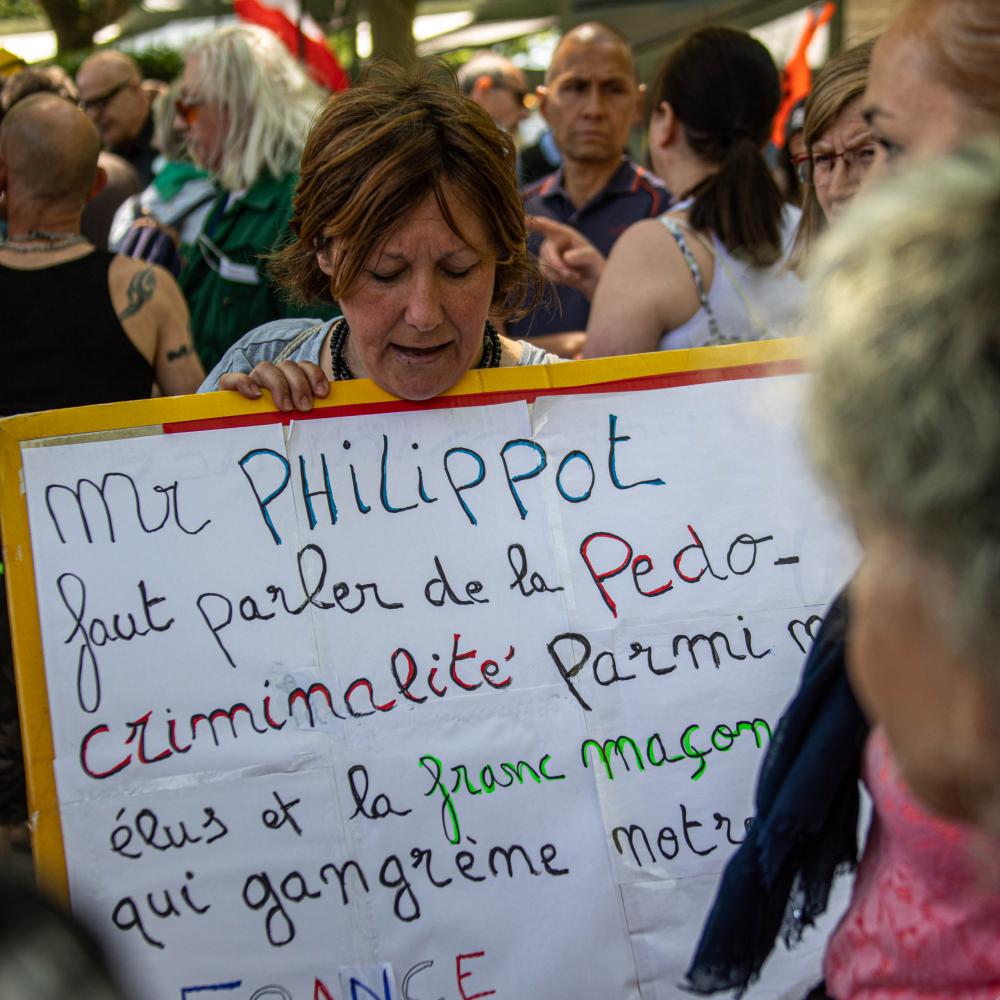 Mr PHiLippot
faut parler de la Pedo-
criminalité parmi
élus et la franc maçon
qui gangrème notre
FRANCE